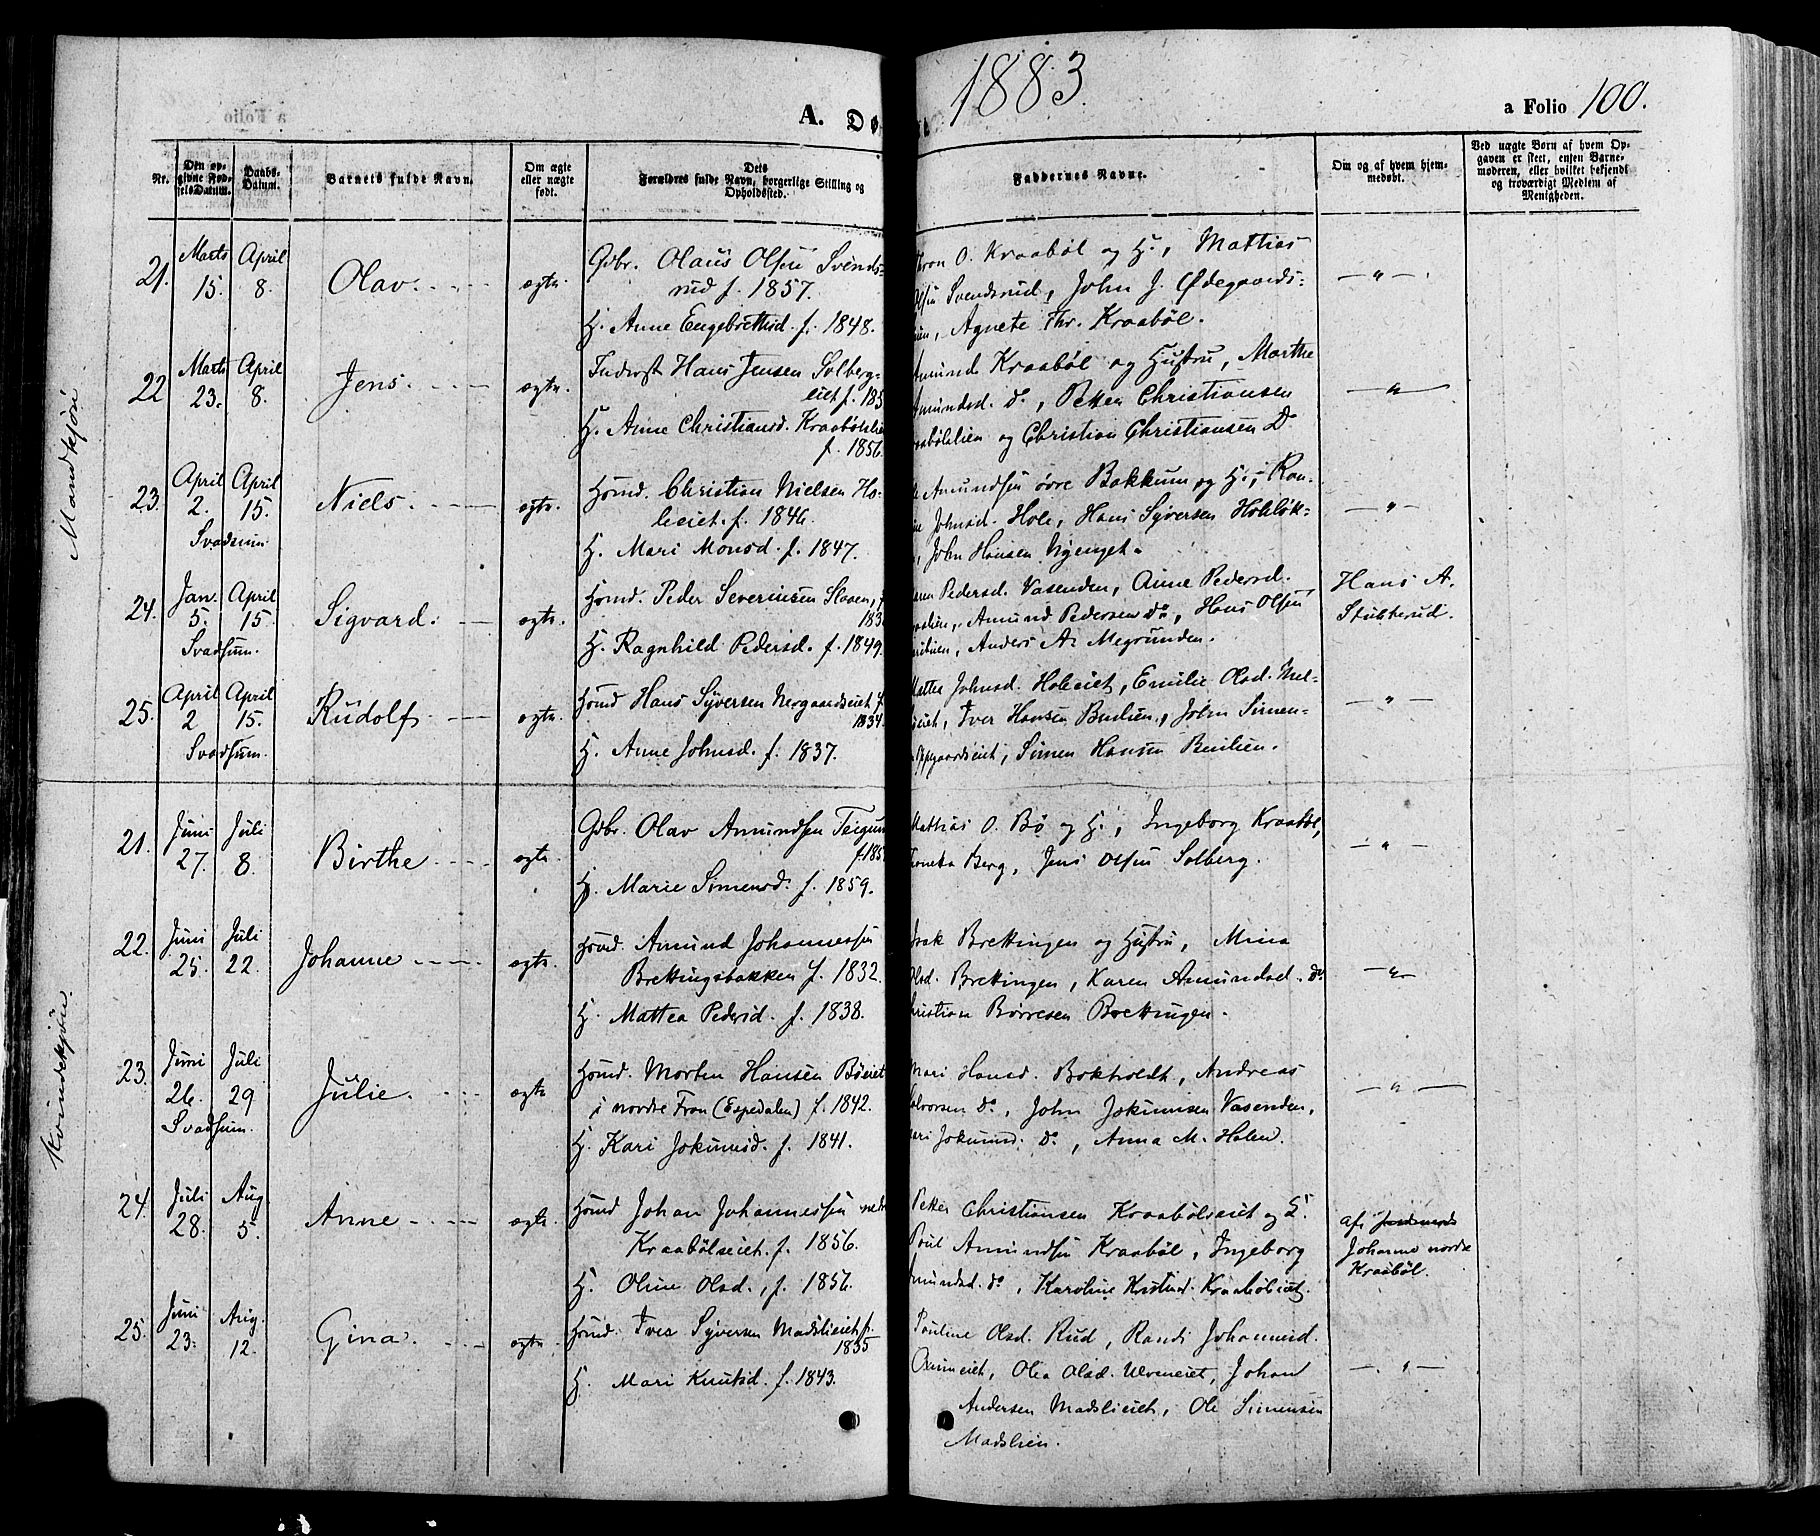 1883
A. Dø
a Folio 100.
Nr.
Den opgivne Fødselsdatum.
Daabs-Datum.
Barnets fulde Navn.
Om ægte eller uægte født.
Forældres fulde Navn, borgerlige Stilling og Opholdssted.
Faddernes Navne.
Om og af hvem hjemmedøbt.
Ved uægte Børn af hvem Opgaven er skeet, enten Barnemoderen, eller hvilket bekjendt og troværdigt Medlem af Menigheden.
Mandkjøn
21. Marts 15. April 8. Olav. ægte.
Gbr. Olaus Olsen Svends-
rud f. 1857.
H. Anne Engebrethsd. f. 1848.
Thron O. Kraabøl og H., Mattias
Olsen Svendsrud, John J. Ødegaards-
Agnete Thr. Kraabøl.
22 Marts 23. April 8. Jens. ægte.
Inderst Hans Jensen Solberg-
eiet f. 185
H. Anne Christiansd. Kraabøllien
f. 1856.
Amund Kraabøl og Hustru, Marthe
Amundsd. do, Petter Christiansen
raabøllien og Christian Christiansen Do
23. April 2. April 15. Svadsum Niels. ægte.
Hsmd. Christian Nielsen Ho-
leeiet. f. 1846.
H. Mari Monsd. f. 1847.
Amundsen øvre Bakkum og H., Ran-
Johnsd. Hole, Hans Syversen Holeløk-
John Hansen Nyenget.
24. Jan. 5. April 15 Svadsum. Sigvard. ægte.
Hsmd. Peder Severinsen Slaaen, f.
183
H. Ragnhild Pedersd. f. 1849.
Pedersd. Vasenden, Anne Pedersd.
Amund Pedersen do, Hans Olsen
Anders A. Megrunden.
Hans A.
Stubberud.
25. April 2 April 15. Svadsum. Rudolf. ægte.
Hsmd Hans Syversen Nergaardseiet f.
1834.
H. Anne Johnsd. f. 1837.
Mattea Johnsd. Holeeiet, Emilie Olsd. Mel-
eiet, Iver Hansen Buelien, John Simen-
Oppgaardseiet, Simen Hansen Buelien.
Kvindekjøn.
21. Juni 27. Juli 8. Birthe ægte.
Gbr. Olav Amundsen Teigum
f. 185
H. Marie Simensd. f. 1859.
Mattias O. Bø og H., Ingeborg Kraabøl,
Berg, Jens Olsen Solberg.
22. Juni 25. Juli 22. Johanne ægte.
Hsmd. Amund Johannessen
Brettingsbakken f. 1832.
H. Mattea Pedersd. f. 1838.
Isak Brettingen og Hustru, Mina
Olsd. Brettingen, Karen Amundsd. do.
Christian Børresen Brettingen.
23. Juni 26. Juli 29 Svadsum. Julie. ægte
Hsmd. Morten Hansen Bøeiet
i nordre Fron (Espedalen) f. 1842.
H. Kari Jokumsd. f. 1841.
Mari Hansd. Bokholdt, Andreas
Halvorsen do, John Jokumsen Vasenden,
Kari Jokumsd. do, Anna M. Holen.
24. Juli 28. Aug. 5. Anne ægte.
Hsmd Johan Johannessen
Kraabølseiet. f. 1856.
H. Oline Olsd., f. 1856.
Petter Christiansen Kraabølseiet og
Poul Amundsen Kraabøl, Ingeborg
Amundsd. do, Karoline Kristensd. Kraabølseiet.
af
Johanne nordre
Kraabøl.
25. Juni 23. Aug. 12. Gina. ægte.
Hsmd. Iver Syversen Madslieeiet f.
1835
H. Mari Knutsd. f. 1843.
Pauline Olsd. Rud, Randi Johannesd.
Olea Olsd. Ulveneiet, Johan
Andersen Madslieeiet, Ole Simensen
Madslien.